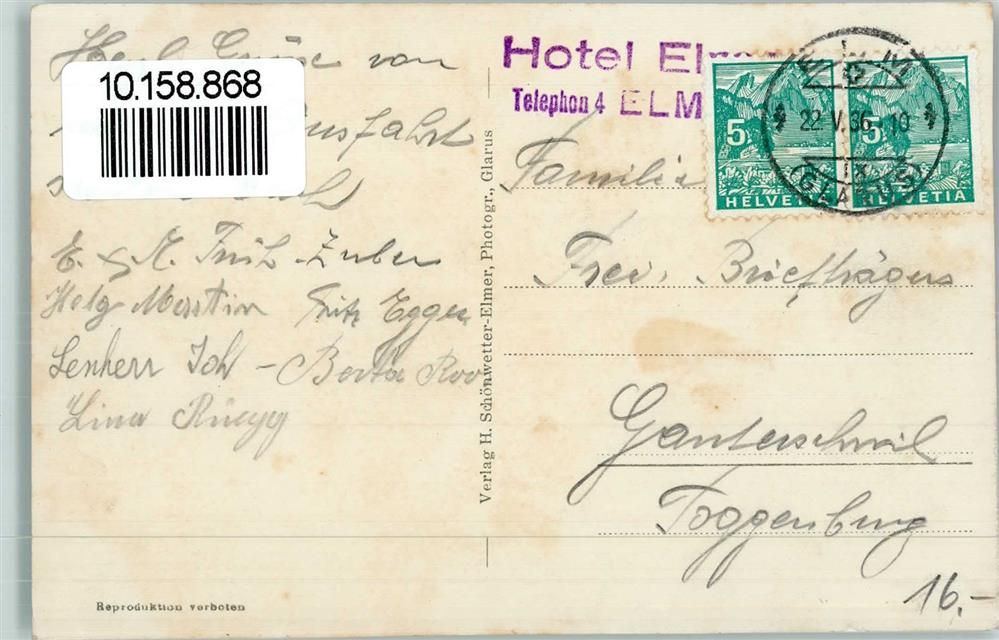 Herzl. Grüsse von
10.158.868
Ausfahrt
E. & M. Früh-Zuber
Helg Martin Fritz Egger
Lenherr Joh - Berta Roo
Lina Rüegg
Reproduktion verboten
Verlag H. Schönwetter-Elmer, Photogr., Glarus
Hotel El
Telephon 4 ELM
ELM
22.V.36. 10
(GLARUS)
5 5
HELVETIA HELVETIA
Familie
Frei, Briefträgers
Ganterschwil
Toggenburg
16.-